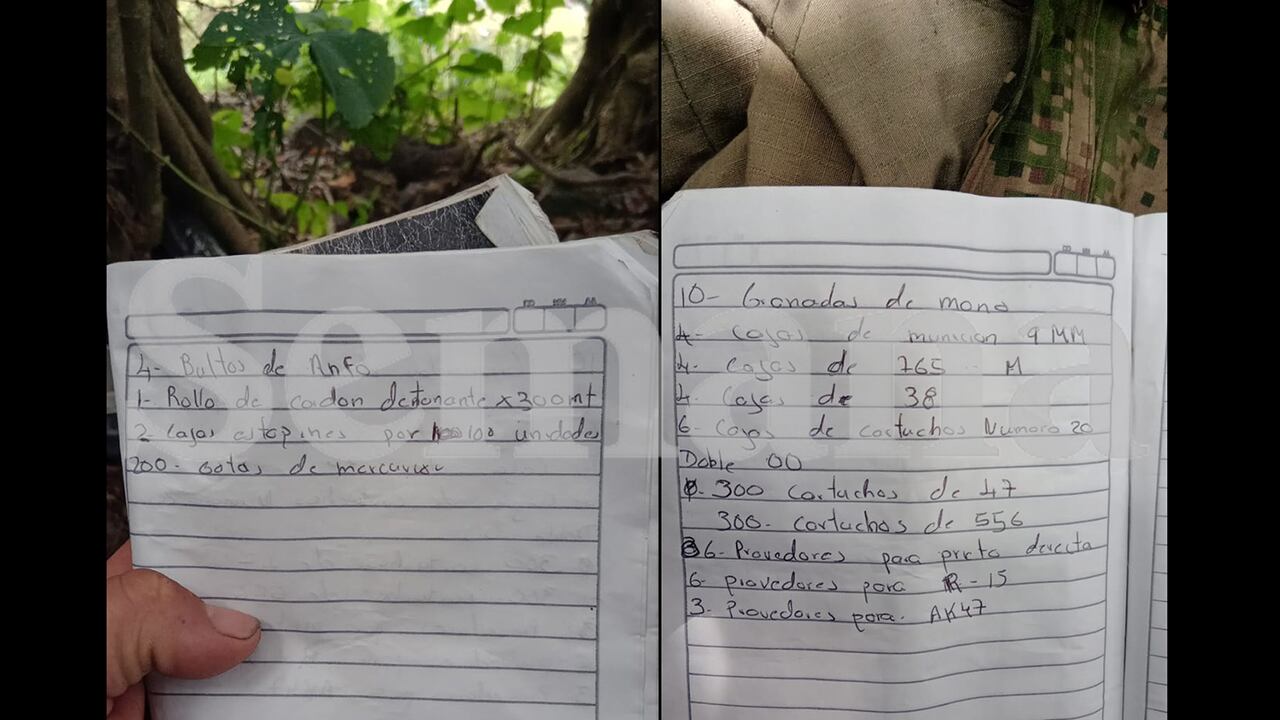 Semana
4- Bultos de Anfo
1- Rollo de cordon detonante x 300 mt
2 cajas estopines por 100 unidades
200- Gotas de mercurio
10- Granadas de mano
4- Cajas de municion 9 MM
4- Cajas de 765 M
4- Cajas de 38
6- Cajas de cartuchos Numero 20
Doble 00
300 cartuchos de 47
300- cartuchos de 556
6- Provedores para prieto derecta
6- provedores para R-15
3- Provedores para. AK47